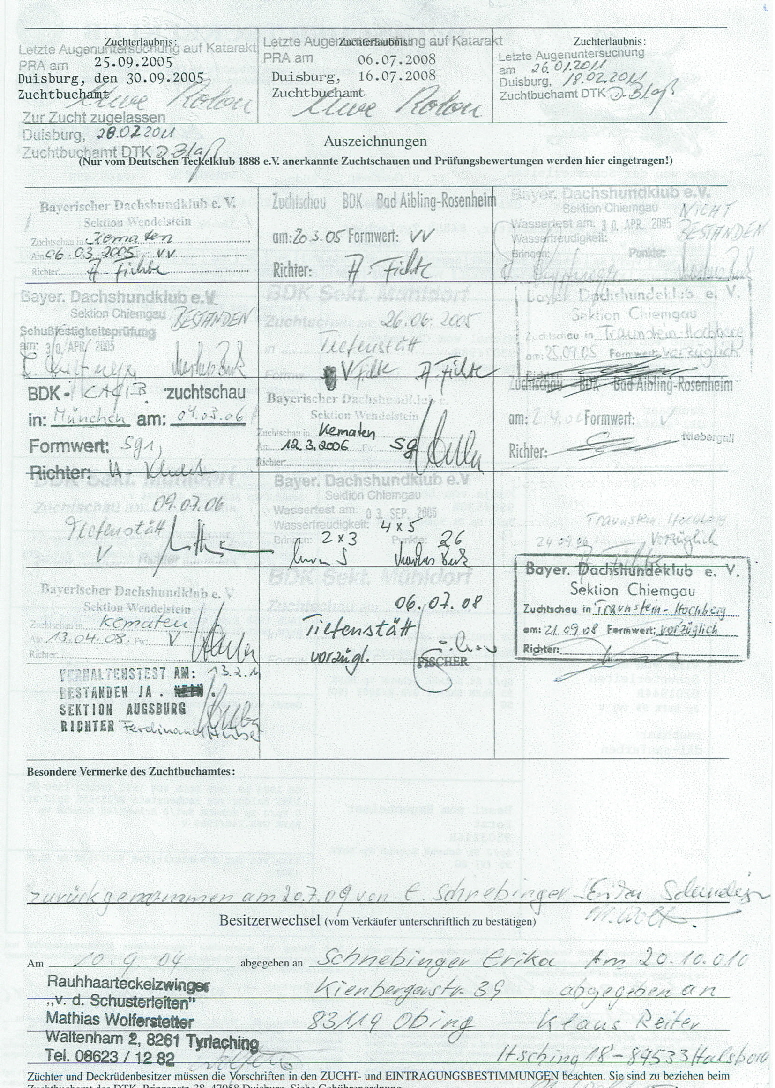 Zuchterlaubnis:
Letzte Augenuntersuchung auf Katarakt
PRA am 25.09.2005
Duisburg, den 30.09.2005
Zuchtbuchamt Uwe
Zur Zucht zugelassen
Duisburg, 28.07.2011
Zuchtbuchamt DTK
Zuchterlaubnis:
Letzte Augenuntersuchung auf Katarakt
PRA am 06.07.2008
Duisburg, 16.07.2008
Zuchtbuchamt Uwe
Zuchterlaubnis:
Letzte Augenuntersuchung
am 26.01.2011
Duisburg, 18.02.2011
Zuchtbuchamt DTK
Auszeichnungen
(Nur vom Deutschen Teckelklub 1888 e.V. anerkannte Zuchtschauen und Prüfungsbewertungen werden hier eingetragen!)
Bayerischer Dachshundklub e. V.
Sektion Wendelstein
Zuchtschau in Kematen
Am 06.03.2005 VV
Richter: A. Fichte
Zuchtschau BDK Bad Aibling-Rosenheim
am: 20.3.05 Formwert: VV
Richter: A. Fichte
Bayer. Dachshundklub e.V.
Sektion Chiemgau NICHT
Wassertest am: 30. APR. 2005 BESTANDEN
Wasserfreudigkeit: Punkte:
Bayer. Dachshundklub e.V
Sektion Chiemgau BESTANDEN
Schußfestigkeitsprüfung
am: 30. APR. 2005
BDK Sekt. Mühldorf
Zuchtschau 26.06.2005
in Tiefenstätt
V A Fichte
Bayer. Dachshundeklub e. V.
Sektion Chiemgau
Zuchtschau in Traunstein-Hochberg
am: 25.09.05 Formwert: vorzüglich
BDK - CACIB zuchtschau
in: München am: 04.03.06
Formwert: Sg1,
Richter:
Bayerischer Dachshundklub e. V.
Sektion Wendelstein
Zuchtschau in Kematen
Am 12.3.2006 sg
Richter:
Zuchtschau BDK Bad Aibling-Rosenheim
am: Formwert: V
Richter:
BDK Sekt. Mühldorf
Zuchtschau am 09.07.06
Tiefenstätt
V
Bayer. Dachshundklub e.V
Sektion Chiemgau
Wassertest am: 03. SEP. 2006
Wasserfreudigkeit: 4 x 5
2 x 3 Punkte: 26
Traunstein Hochberg
24.09.06 Vorzüglich
Bayerischer Dachshundklub e. V.
Sektion Wendelstein
Zuchtschau in Kematen
Am 13.04.08 V
Richter:
VERHALTENSTEST AM: 13.2.11
BESTANDEN JA.
SEKTION AUGSBURG
RICHTER Ferdinand
BDK Sekt. Mühldorf
06.07.08
Tiefenstätt
vorzügl.
FISCHER
Bayer. Dachshundeklub e. V.
Sektion Chiemgau
Zuchtschau in Traunstein-Hochberg
am: 21.09.08 Formwert: vorzüglich
Richter:
Besondere Vermerke des Zuchtbuchamtes:
zurückgenommen am 20.7.09 von E. Schnebinger
Besitzerwechsel (vom Verkäufer unterschriftlich zu bestätigen)
Am 10.9.04 abgegeben an Schnebinger Erika Am 20.10.010
Kienbergerstr. 39 abgegeben an
83119 Obing Klaus Reiter
Rauhhaarteckelzwinger
„v. d. Schusterleiten"
Mathias Wolferstetter
Waltenham 2, 8261 Tyrlaching
Tel. 08623 / 12 82
Itsching 18 - 84533
Züchter und Deckrüdenbesitzer müssen die Vorschriften in den ZUCHT- und EINTRAGUNGSBESTIMMUNGEN beachten. Sie sind zu beziehen beim